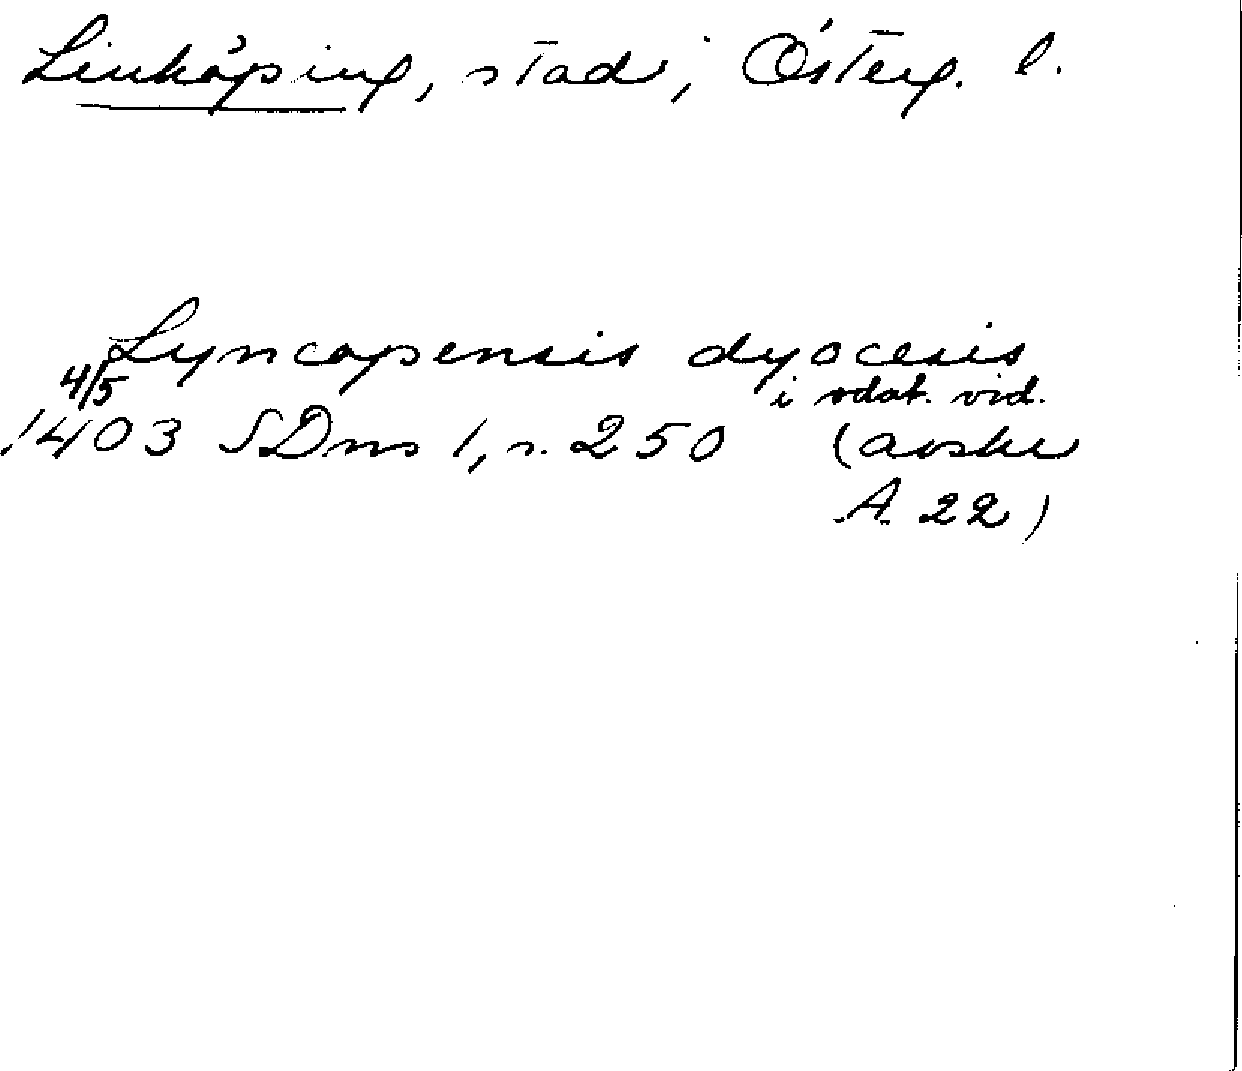 Linköping, stad, Österg. l.
Lyncopensis dyocesis
4/5 i sdat. vid.
1403 SDns 1, s. 250 (avskr
A. 22)